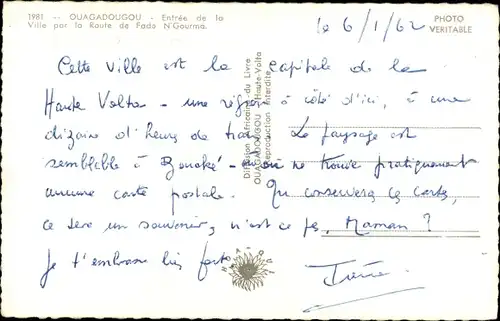 1981 -- OUAGADOUGOU - Entrée de la
Ville par la Route de Fada N'Gourma.
PHOTO
VERITABLE
le 6/1/62
Cette ville est la capitale de la
Haute Volta - une région à côté d'ici, à une
dizaine d'heures de train. Le paysage est
semblable à Bouaké - où on ne trouve pratiquement
aucune carte postale. Tu conserveras ces cartes,
ce sera un souvenir, n'est ce pas, Maman ?
Je t'embrasse bien fort
Diffusion Africaine du Livre
OUAGADOUGOU Haute-Volta
Reproduction Interdite